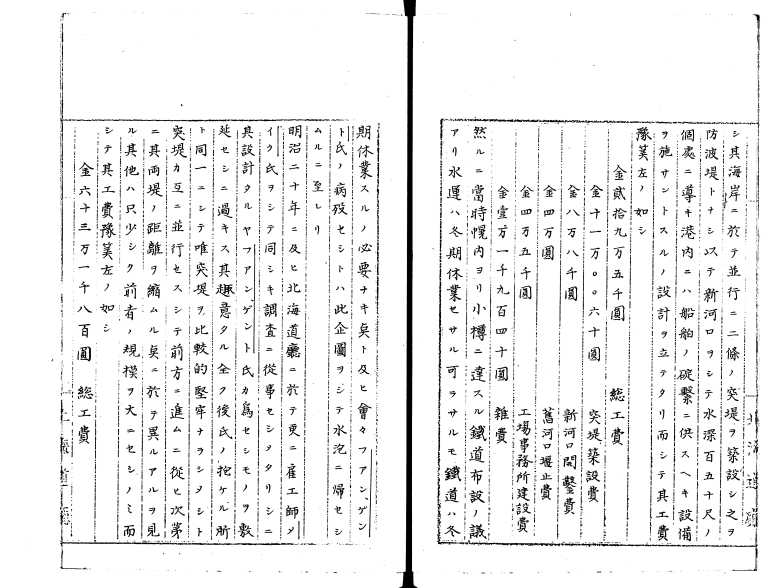 シ其海岸ニ於テ並行ニ二條ノ突堤ヲ築設シ之ヲ
防波堤トナシ以テ新河口ヲシテ水深百五十尺ノ
個處ニ導キ港内ニハ船舶ノ碇繋ニ供スヘキ設備
ヲ施サントスルノ設計ヲ立テタリ而シテ其工費
豫算左ノ如シ
金貳拾九万五千圓 総工費
金十一万〇〇六十圓 突堤築設費
金八万八千圓 新河口開鑿費
金四万圓 舊河口堰止費
金四万五千圓 工場事務所建設費
金壹万一千九百四十圓 雑費
然ルニ當時幌内ヨリ小樽ニ達スル鐵道布設ノ議
アリ水運ハ冬期休業セサル可ラサルモ鐵道ハ冬
期休業スルノ必要ナキ矣ト及ヒ會々ファンゲン
ト氏ノ病歿セシトハ此企圖ヲシテ水泡ニ帰セシ
ムルニ至レリ
明治二十年ニ及ヒ北海道廳ニ於テ更ニ雇工師メ
イク氏ヲシテ同シキ調査ニ從事セシメタリシニ
其設計タルヤファンゲント氏カ為セシモノヲ敷
延セシニ過キス其趣意タル全ク後氏ノ抱ケル所
ト同一ニシテ唯突堤ヲ比較的堅牢ナラシメシト
突堤カ互ニ並行セスシテ前方ニ進ムニ従ヒ次第
ニ其両堤ノ距離ヲ縮ムル矣ニ於テ異ルアルヲ見
ル其他ハ只少シク前者ノ規模ヲ大ニセシノミ而
シテ其工費豫算左ノ如シ
金六十三万一千八百圓 総工費